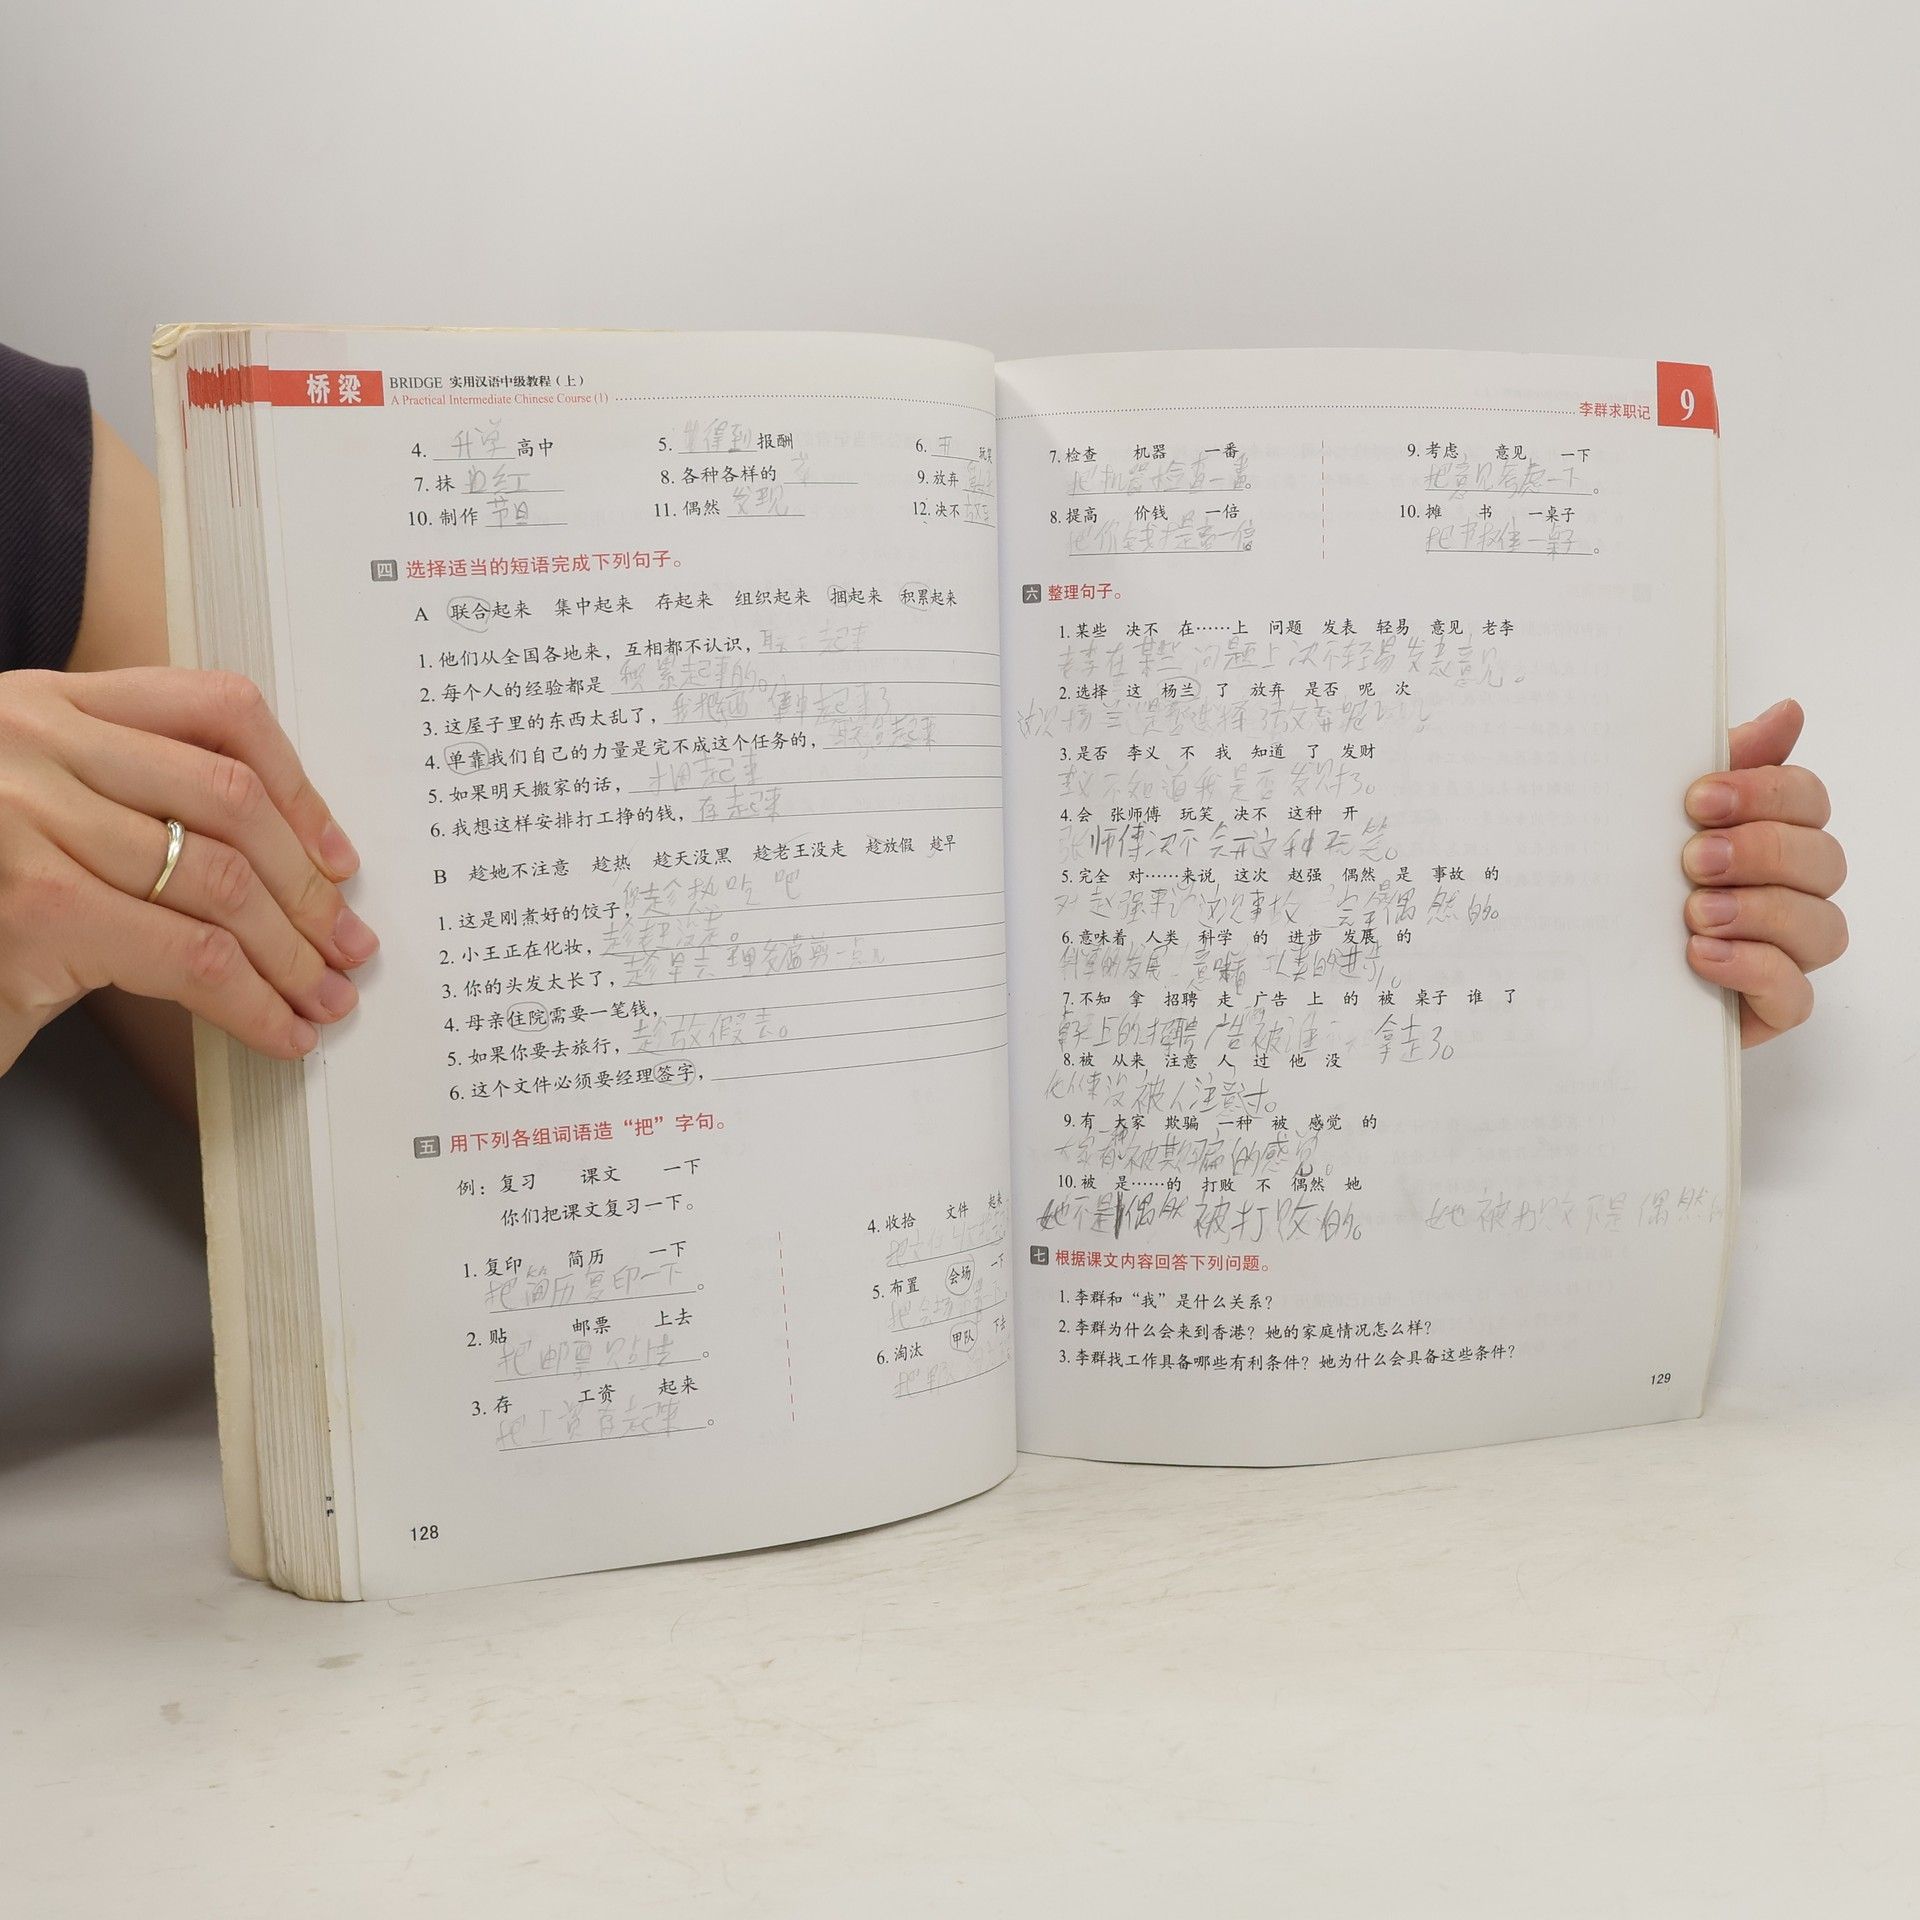 桥梁 BRIDGE 实用汉语中级教程（上）
A Practical Intermediate Chinese Course (1)
4. 升学 高中 5. 得到 报酬 6. 开 玩笑
7. 抹 口红 8. 各种各样的 9. 放弃
10. 制作 节目 11. 偶然 发现 12. 决不
四 选择适当的短语完成下列句子。
A 联合起来 集中起来 存起来 组织起来 捆起来 积累起来
1. 他们从全国各地来，互相都不认识， 起来
2. 每个人的经验都是 积累起来的。
3. 这屋子里的东西太乱了， 我把 集中起来了
4. 单靠我们自己的力量是完不成这个任务的， 联合起来
5. 如果明天搬家的话， 捆起来
6. 我想这样安排打工挣的钱， 存起来
B 趁她不注意 趁热 趁天没黑 趁老王没走 趁放假 趁早
1. 这是刚煮好的饺子， 你趁热吃吧
2. 小王正在化妆，
3. 你的头发太长了， 趁早去 一点儿
4. 母亲住院需要一笔钱，
5. 如果你要去旅行， 趁放假去。
6. 这个文件必须要经理签字，
五 用下列各组词语造“把”字句。
例：复习 课文 一下
你们把课文复习一下。
1. 复印 简历 一下
把简历复印一下。
2. 贴 邮票 上去
把邮票贴上去。
3. 存 工资 起来
把工资存起来。
4. 收拾 文件 起来
5. 布置 会场 一下
6. 淘汰 甲队 下去
128
李群求职记 9
7. 检查 机器 一番
把机器检查一番。
8. 提高 价钱 一倍
把价钱提高一倍。
9. 考虑 意见 一下
把意见考虑一下。
10. 摊 书 一桌子
把书 一桌子。
六 整理句子。
1. 某些 决不 在……上 问题 发表 轻易 意见 老李
老李在某些问题上决不轻易发表意见。
2. 选择 这 杨兰 了 放弃 是否 呢 次
这次杨兰是否选择了放弃呢？
3. 是否 李义 不 我 知道 了 发财
李义不知道我是否发财了。
4. 会 张师傅 玩笑 决不 这种 开
张师傅决不会开这种玩笑。
5. 完全 对……来说 这次 赵强 偶然 是 事故 的
对赵强来说这次事故完全是偶然的。
6. 意味着 人类 科学 的 进步 发展 的
科学的发展意味着人类的进步。
7. 不知 拿 招聘 走 广告 上 的 被 桌子 谁 了
桌子上的招聘广告被谁 拿走了。
8. 被 从来 注意 人 过 他 没
他从来没被人注意过。
9. 有 大家 欺骗 一种 被 感觉 的
大家有一种被欺骗的感觉。
10. 被 是……的 打败 不 偶然 她
她不是偶然被打败的。 她被打败不是偶然的
七 根据课文内容回答下列问题。
1. 李群和“我”是什么关系？
2. 李群为什么会来到香港？她的家庭情况怎么样？
3. 李群找工作具备哪些有利条件？她为什么会具备这些条件？
129